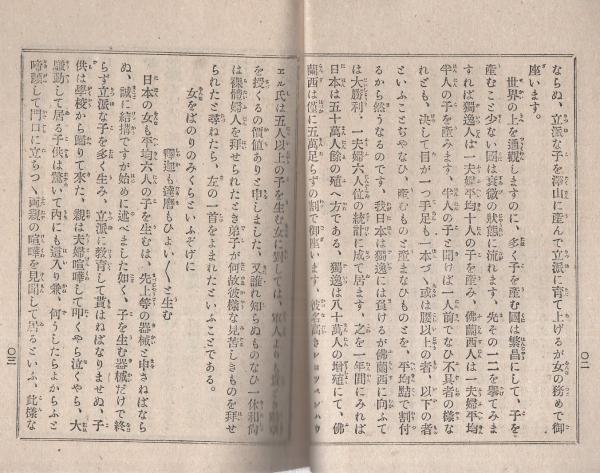 ならぬ、立派な子を澤山に産んで立派に育て上げるが女の務めで御
座います。
世界の上を通觀しますのに、多く子を産む國は繁昌にして、子を
産むこと少ない國は衰微の狀態に流れます、先その一二を擧てみま
すれば獨逸人は一夫婦平均十人の子を産み、佛蘭西人は一夫婦平均
半人の子を産みます、半人の子と聞けば一人前でなひ不具者の樣な
れども、決して目が一つ手足も一本づゝ或は腰以上の者、以下の者
といふことぢやなひ、産むものと産まなひものとを、平均詰て割付
るから然うなるのです、我日本は獨逸には負けるが佛蘭西に向ふて
は大勝利、一夫婦六人位の統計に成て居ます、之を一年間にみれば
日本は五十萬人餘の殖へ方である、獨逸は八十萬人の増殖にて、佛
蘭西は僅に五萬足らずの割で御座います、彼名高き
〇二
エル氏は五人以上の子を生む女に對しては、軍人より
を授くるの價値ありと申しました、又誰れ知らぬものなひ一休和尙
は裸體婦人を拜せられたとき弟子が何故彼樣な見苦しきものを拜せ
られたと尋ねたら、左の一首をよまれたといふことである。
女をばのりのみくらといふぞげに
釋迦も達磨もひよい〳〵と生む
日本の女も平均六人の子を生むは、先上等の器械と申さねばなら
ぬ、誠に結搆ですが始めに述べました如く、子を生む器械だけで終
らず立派な子を多く生み、立派に敎育して貰はねばなりませぬ、子
供は學校から歸りて來た、親は夫婦喧嘩して叩くやら泣くやら、大
騷動して居る子供は驚いて內にも這入り兼、何うしたらよからふと
啼顏して門口に立ちつゝ兩親の喧嘩を見聞して居るといふ、此樣な
〇三